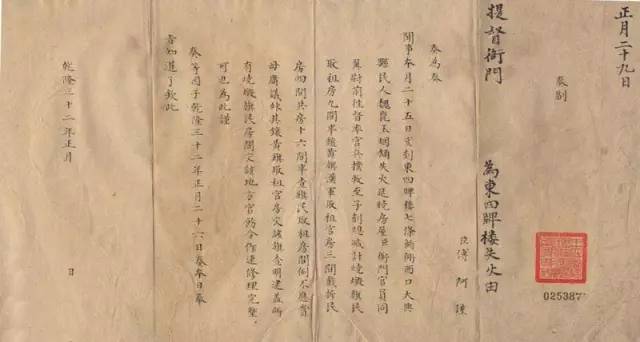 正月二十九日
提督衙門
為東四牌樓失火由
025387
奏為奏
聞事本月二十五日亥刻東四牌樓七條衚衕西口大興
縣民人魏崑玉烟鋪失火延燒房屋臣衙門官員同
翼尉前往督率官兵撲救至子刻熄滅計燒燬旗民
取租房九間鑲黃旗漢軍取租官房三間拆民
房四間共房十六間查旗民取租房間例不應
毋庸議外其鑲黃旗取租官房交該旗查明建蓋所
有燒燬旗民房間交該地方官飭令作速修理完整
可也為此謹
奏等因于乾隆三十二年正月二十六日奏本日奉
旨知道了欽此
乾隆三十二年正月 日